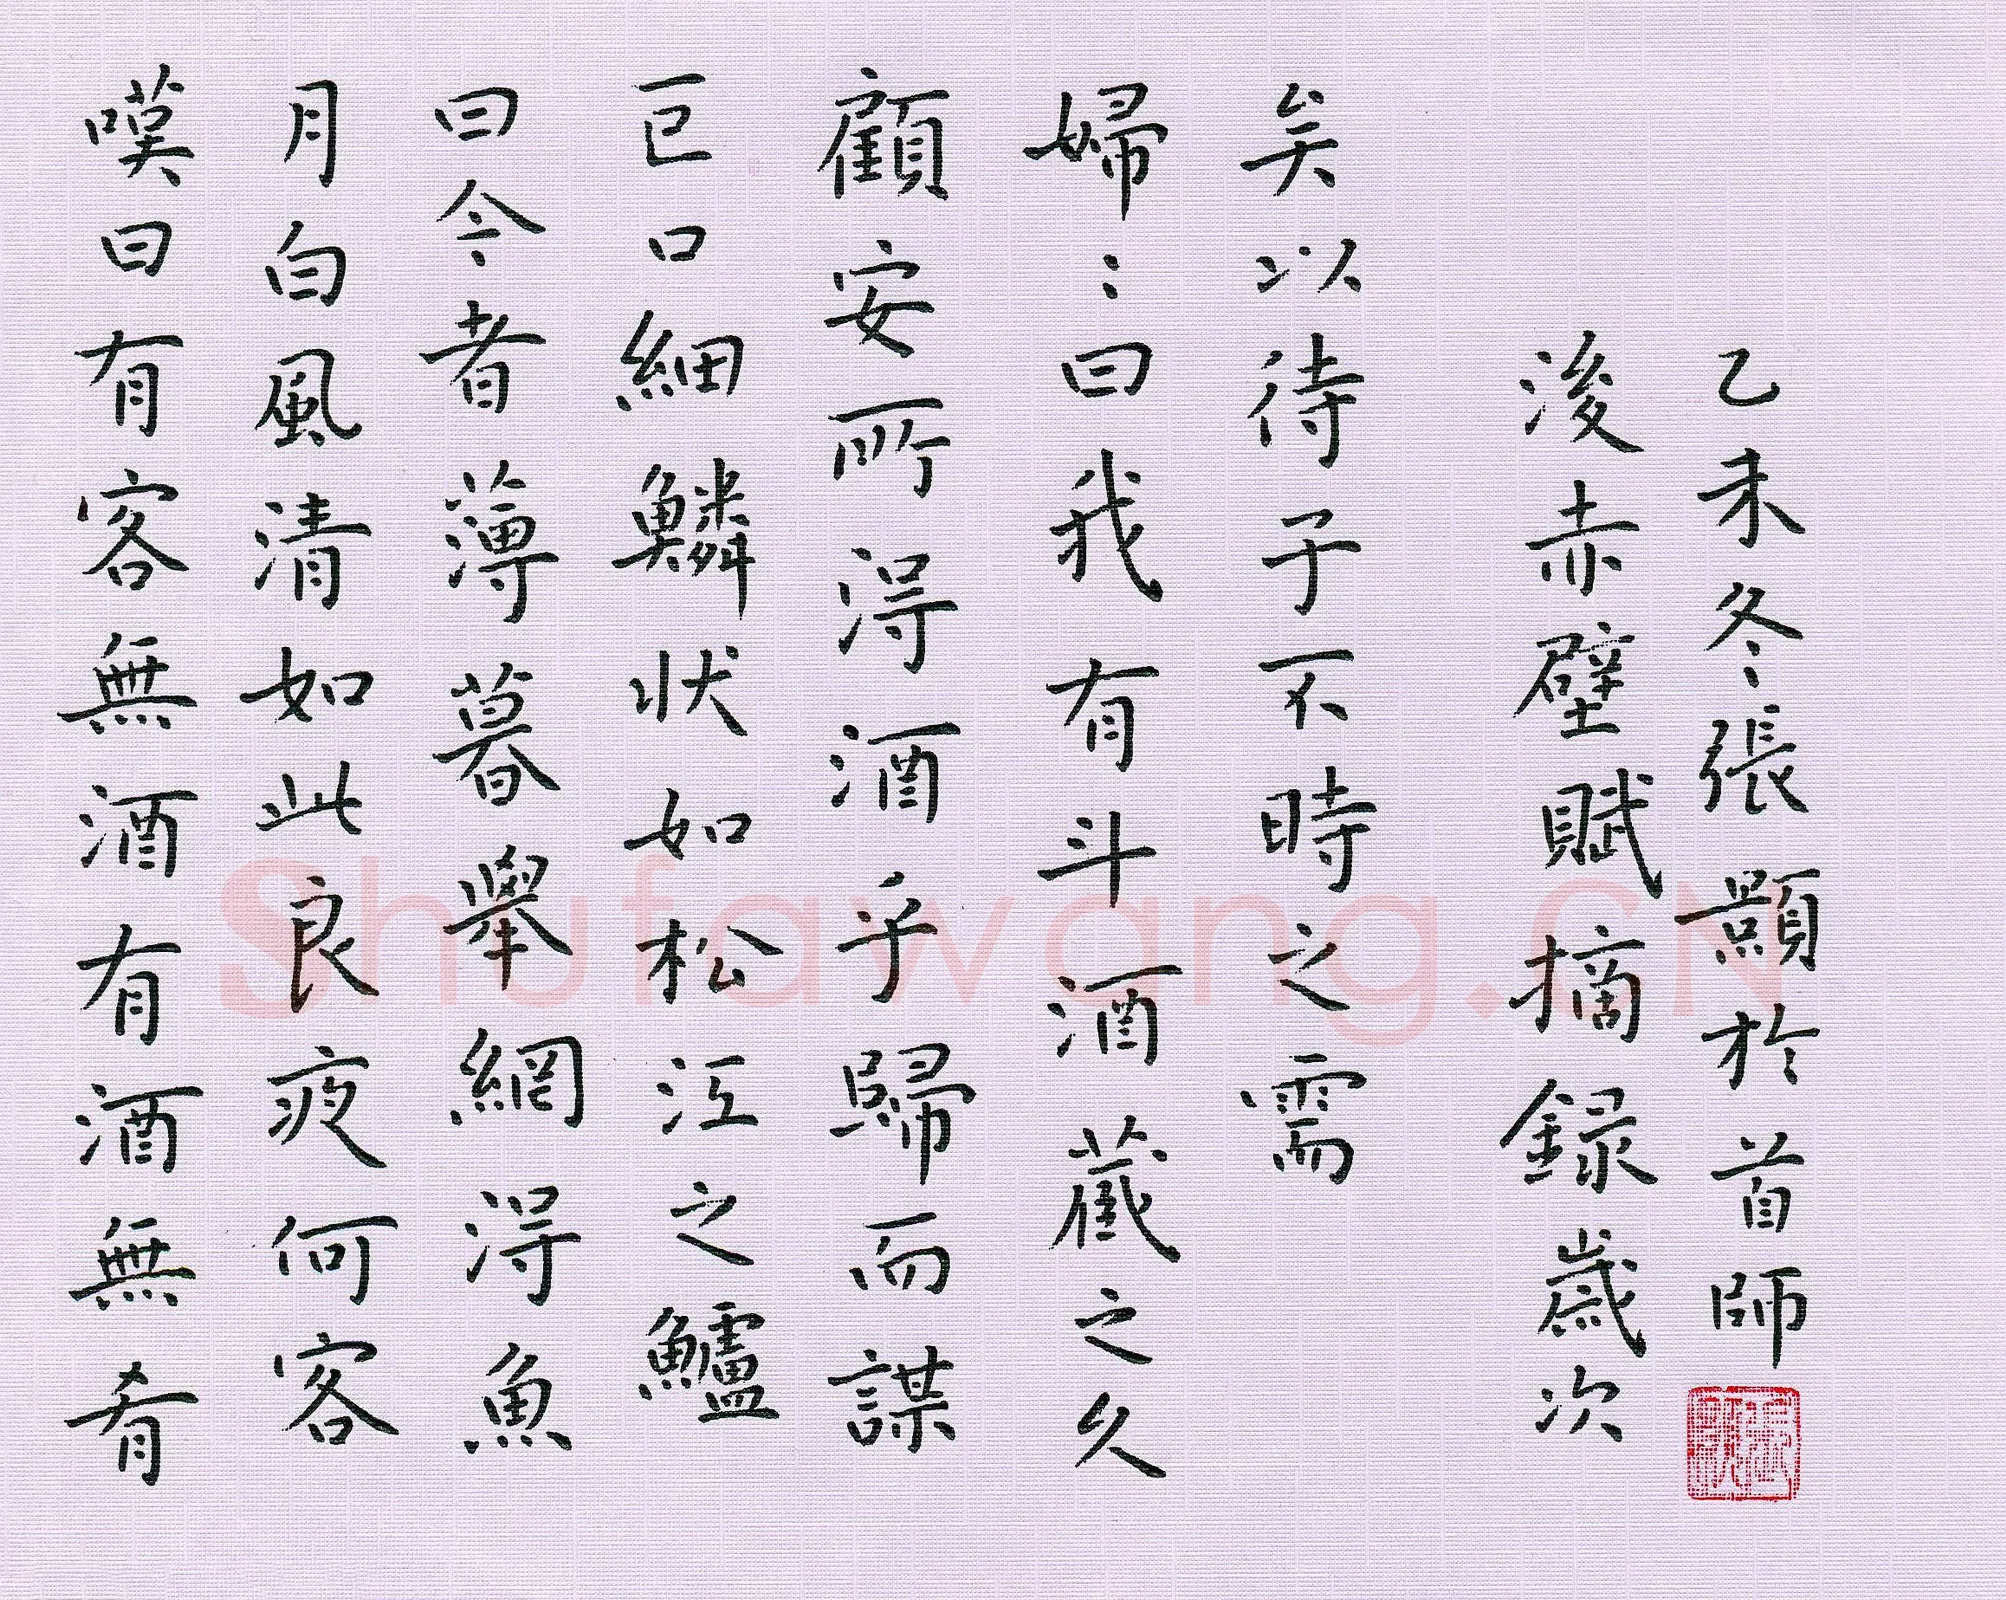 嘆曰有客無酒有酒無肴
月白風清如此良夜何客
曰今者薄暮舉網得魚
巨口細鱗狀如松江之鱸
顧安所得酒乎歸而謀
婦〻曰我有斗酒藏之久
矣以待子不時之需
後赤壁賦摘録歲次
乙未冬張顥於首師
Shufawang.CN